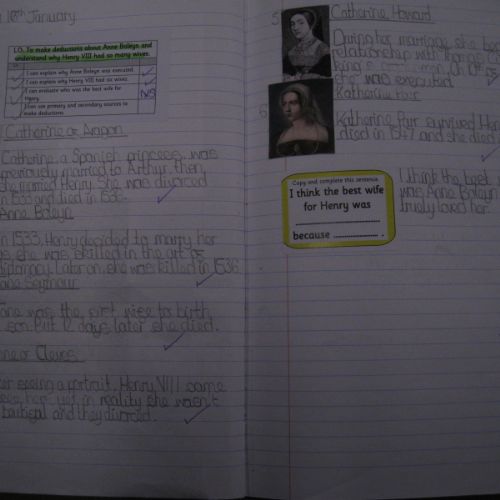 16th January
L.O. To make deductions about Anne Boleyn and
understand why Henry VIII had so many wives.
I can explain why Anne Boleyn was executed.
I can explain why Henry VIII had so many wives.
I can evaluate who was the best wife for
Henry.
NS
I can use primary and secondary sources to
make deductions.
1 Catherine of Aragon
Catherine, a Spanish princess, was
previously married to Arthur, then
she married Henry. She was divorced
in 1533 and died in 1536.
Anne Boleyn
In 1533, Henry decided to marry her
as she was skilled in the art of
Later on, she was killed in 1536.
Jane Seymour
Jane was the first wife to birth
a son. But 12 days later she died.
Anne of Cleves
After seeing a portrait, Henry VIII
her, yet in reality she wasn't
and they divorced.
5 Catherine Howard
During her marriage she
relationship with Thomas
being a
she was executed.
Katharine Parr
6
Katharine Parr survived Henry
died in 1547 and she died
Copy and complete this sentence.
I think the best wife
for Henry was
because .
I think the best
was Anne Boleyn
truely loved her.